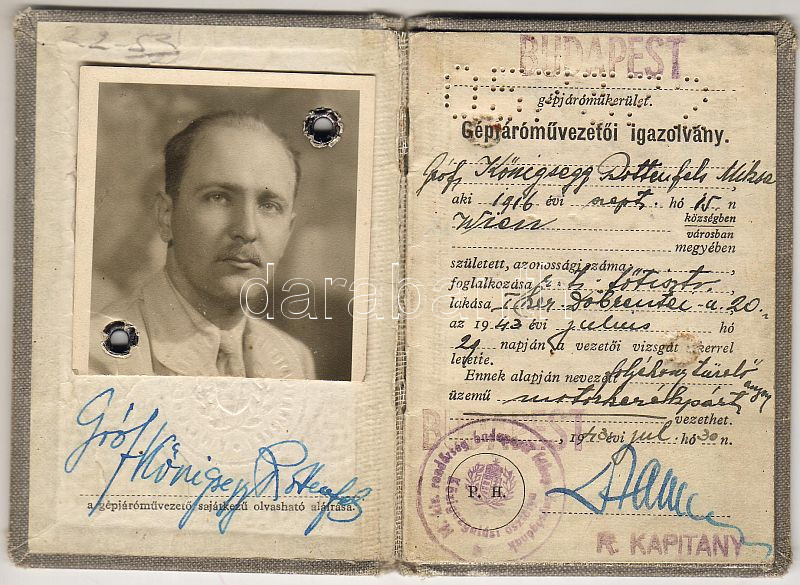 22-53
Gróf Königsegg Rottenfels
a gépjárművezető sajátkezű olvasható aláírása.
BUDAPEST
gépjáróműkerület.
Gépjáróművezetői igazolvány.
Gróf Königsegg Rottenfels Miksa
aki 1916 évi szept. hó 15. n
Wien községben
városban
megyében
született, azonossági száma
foglalkozása főtiszt.
lakása I. ker Döbrentei u 20.
az 1943 évi július hó
29 napján a vezetői vizsgát sikerrel
letette.
Ennek alapján nevezett folyékony tüzelő anyag
üzemű motorkerékpárt
vezethet.
BUDAPEST, 1943 évi jul. hó 30 n.
P. H.
R. KAPITÁNY
darabanth